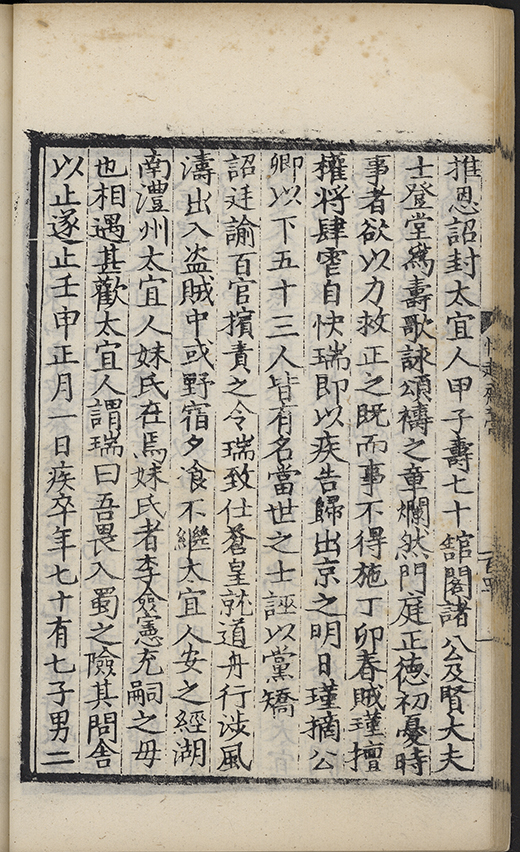 推恩詔封太宜人甲子壽七十館閣諸公及賢大夫
士登堂爲壽歌詠頌禱之章爛然門庭正德初憂時
事者欲以力救正之既而事不得施丁卯春賊瑾擅
權將肆雪自快瑞即以疾告歸出京之明日瑾摘公
卿以下五十三人皆有名當世之士誣以黨矯
詔廷諭百官擯責之令瑞致仕蒼皇就道舟行涉風
濤出入盗賊中或野宿夕飡不繼太宜人安之經湖
南澧州太宜人妹氏在焉妹氏者李僉憲充嗣之母
也相遇甚歡太宜人謂瑞曰吾畏入蜀之險其問舍
以止遂止壬申正月一日疾卒年七十有七子男二